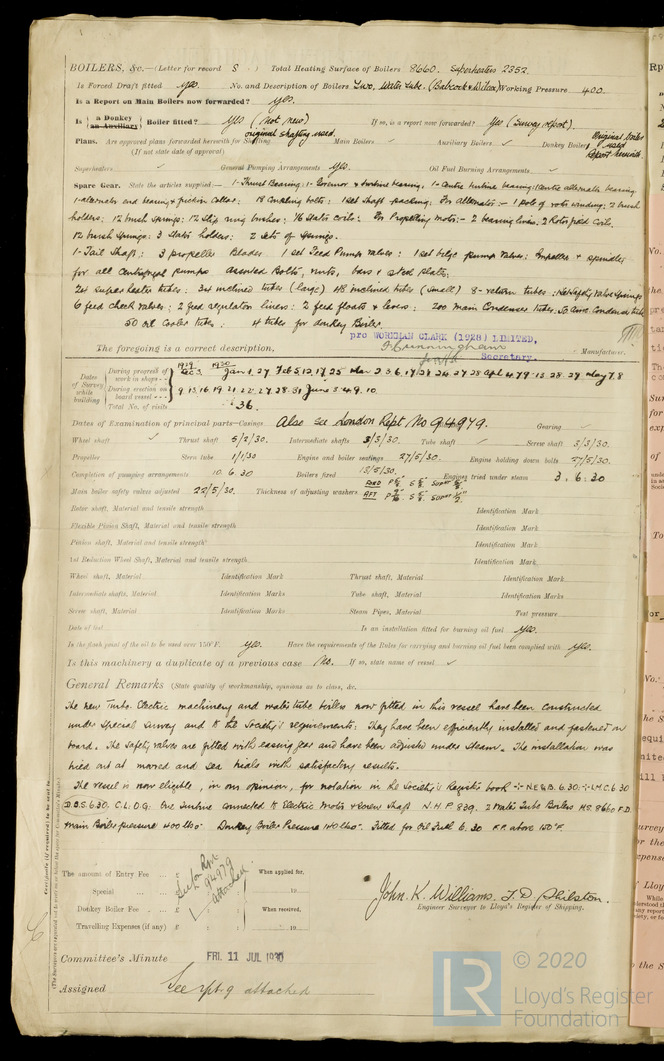 BOILERS, &c.—(Letter for record S ) Total Heating Surface of Boilers 8660. Superheaters 2352.
Is Forced Draft fitted yes. No. and Description of Boilers Two, Water tube. (Babcock & Wilcox) Working Pressure 400.
Is a Report on Main Boilers now forwarded? yes.
Is { a Donkey / an Auxiliary } Boiler fitted? Yes (Not new) If so, is a report now forwarded? Yes (Survey report).
original shafting used.
Plans. Are approved plans forwarded herewith for Shafting Main Boilers ✓ Auxiliary Boilers ✓ Donkey Boilers Original boiler used
(If not state date of approval)
Superheaters ✓ General Pumping Arrangements Yes. Oil Fuel Burning Arrangements ✓
Spare Gear. State the articles supplied:— 1-Thrust Bearing: 1-Governor & turbine bearing: 1-Centre turbine bearing: 1 Centre alternator bearing
1-alternator end bearing & friction collar: 18 Coupling bolts: 1 set shaft packing: For alternator:- 1 pole of rotor winding: 2 brush
holders: 12 brush springs: 12 slip ring brushes: 16 Stator Coils: For Propelling motor:- 2 bearing linings. 2 Rotor field Coils.
12 brush springs: 3 Stator holders: 2 sets of springs.
1-Tail Shaft: 3 propeller Blades 1 set Feed Pump valves: 1 set bilge pump valves: Impeller & spindles
for all centrifugal pumps assorted Bolts, nuts, bars & steel plate:
20 superheater tubes: 34 inclined tubes (large) 48 inclined tubes (small) 8-return tubes: 1 set Safety Valve Springs
6 feed check valves: 2 feed regulator liners: 2 feed floats & levers: 200 main Condenser tubes. 50 Aux. Condenser tubes
50 oil cooler tubes. 4 tubes for donkey Boiler.
pro WORKMAN CLARK (1928) LIMITED,
The foregoing is a correct description, Secretary. Manufacturer.
Dates of Survey while building
During progress of work in shops -- 1929 Dec 3 1930 Jan 9. 27 Feb 5 12 17 25 Mar 2 3 6 17 18 24 27 28 Apl 4 7 9 15 28 29 May 7 8
During erection on board vessel --- 9. 13 16 19 21 22 27 28 31 June 3. 4. 9. 10.
Total No. of visits 36.
Dates of Examination of principal parts—Casings Also see London Rept No 94979. Gearing ✓
Wheel shaft ✓ Thrust shaft 5/2/30. Intermediate shafts 3/3/30. Tube shaft ✓ Screw shaft 3/3/30.
Propeller Stern tube 1/1/30 Engine and boiler seatings 27/5/30. Engine holding down bolts 27/5/30.
Completion of pumping arrangements 10. 6. 30 Boilers fixed 13/5/30. Engines tried under steam 3. 6. 30
Main boiler safety valves adjusted 22/5/30. Thickness of adjusting washers FORD AFT
Rotor shaft, Material and tensile strength Identification Mark
Flexible Pinion Shaft, Material and tensile strength Identification Mark
Pinion shaft, Material and tensile strength Identification Mark
1st Reduction Wheel Shaft, Material and tensile strength Identification Mark
Wheel shaft, Material Identification Mark Thrust shaft, Material Identification Mark
Intermediate shafts, Material Identification Marks Tube shaft, Material Identification Marks
Screw shaft, Material Identification Marks Steam Pipes, Material Test pressure
Date of test Is an installation fitted for burning oil fuel yes.
Is the flash point of the oil to be used over 150°F. yes. Have the requirements of the Rules for carrying and burning oil fuel been complied with yes.
Is this machinery a duplicate of a previous case No. If so, state name of vessel ✓
General Remarks (State quality of workmanship, opinions as to class, &c.
The new Turbo. Electric machinery and water tube boilers now fitted in this vessel have been constructed
under Special Survey and to the Society's requirements: They have been efficiently installed and fastened on
board. The Safety valves are fitted with easing gear and have been adjusted under steam. The installation was
tried out at moored and sea trials with satisfactory results.
The vessel is now eligible, in our opinion, for notation in the Society's Register book N.E.&B. 6.30 L.M.C. 6.30
D.B.S. 6.30. C.L. O.G: One Turbine Connected to Electric Motor & Screw Shaft N.H.P. 839. 2 Water Tube Boilers H.S. 8660 F.D.
Main Boiler pressure 400 lbs. Donkey Boiler Pressure 140 lbs. Fitted for Oil Fuel 6. 30 F.P. above 150°F.
The amount of Entry Fee ... £ When applied for,
Special ... £ 19
Donkey Boiler Fee ... £ When received,
Travelling Expenses (if any) £ 19
See Lon Rpt 94979 attached
John. K. Williams. T. D. Shilston.
Engineer Surveyor to Lloyd's Register of Shipping.
Committee's Minute FRI. 11 JUL 1930
Assigned See rpt 9 attached
Certificate (if required) to be sent to
(The Surveyors are requested not to write on or below the space for Committee's Minute.)
LR © 2020
Lloyd's Register
Foundation